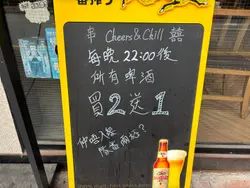 串 Cheers & Chill 囍
每晚 22:00後
所有啤酒
買2送1
仲唔入嚟